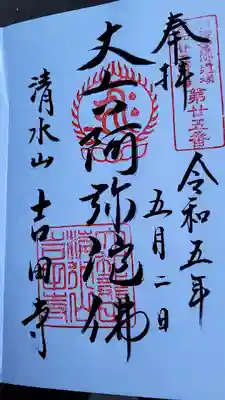 奉拝
第廿五番
令和五年
五月二日
丈六阿弥陀佛
清水山 吉田寺